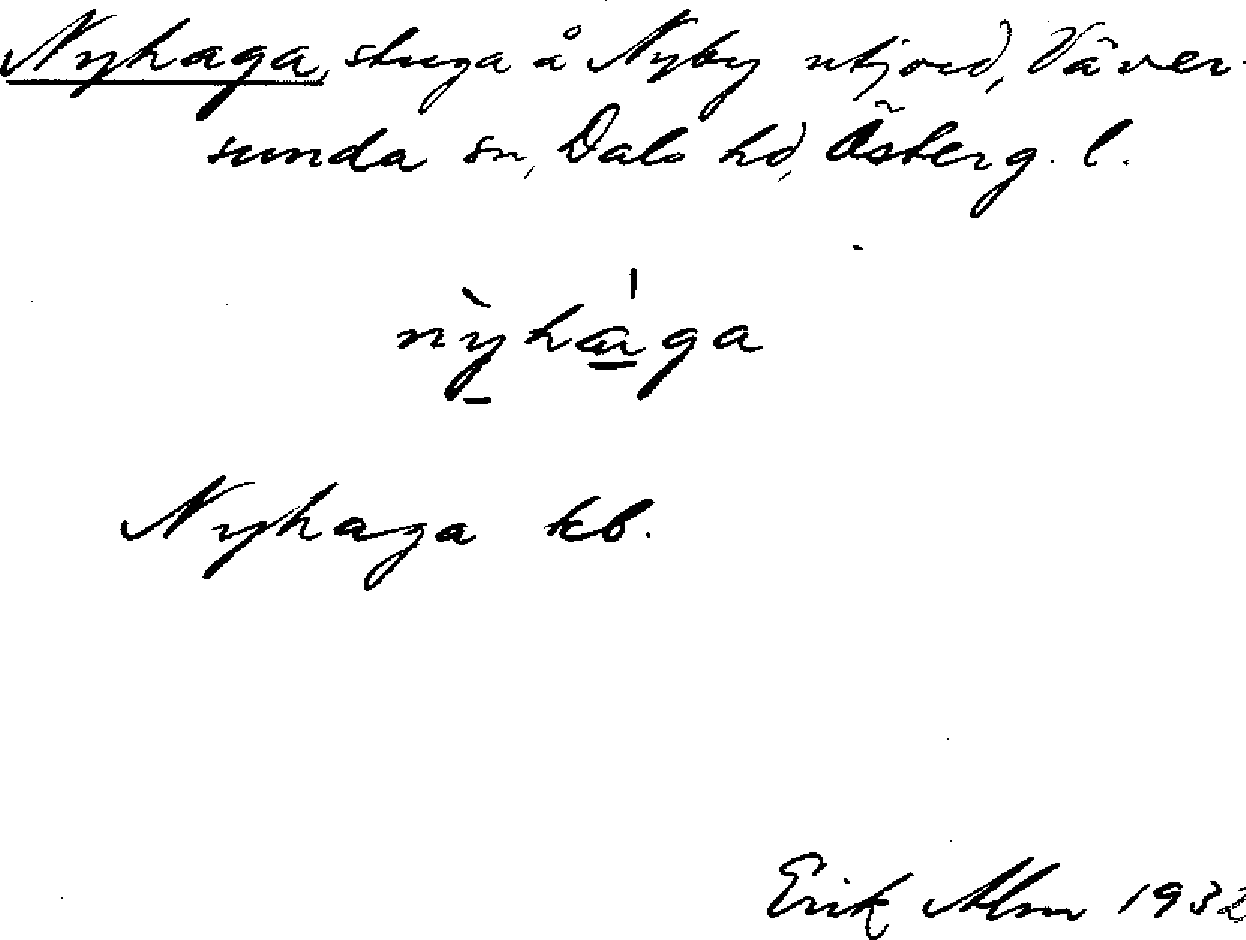 Nyhaga, stuga å Nyby utjord, Väver-
sunda sn, Dals hd, Österg. l.
nỳhága
Nyhaga kb.
Erik Alm 1932